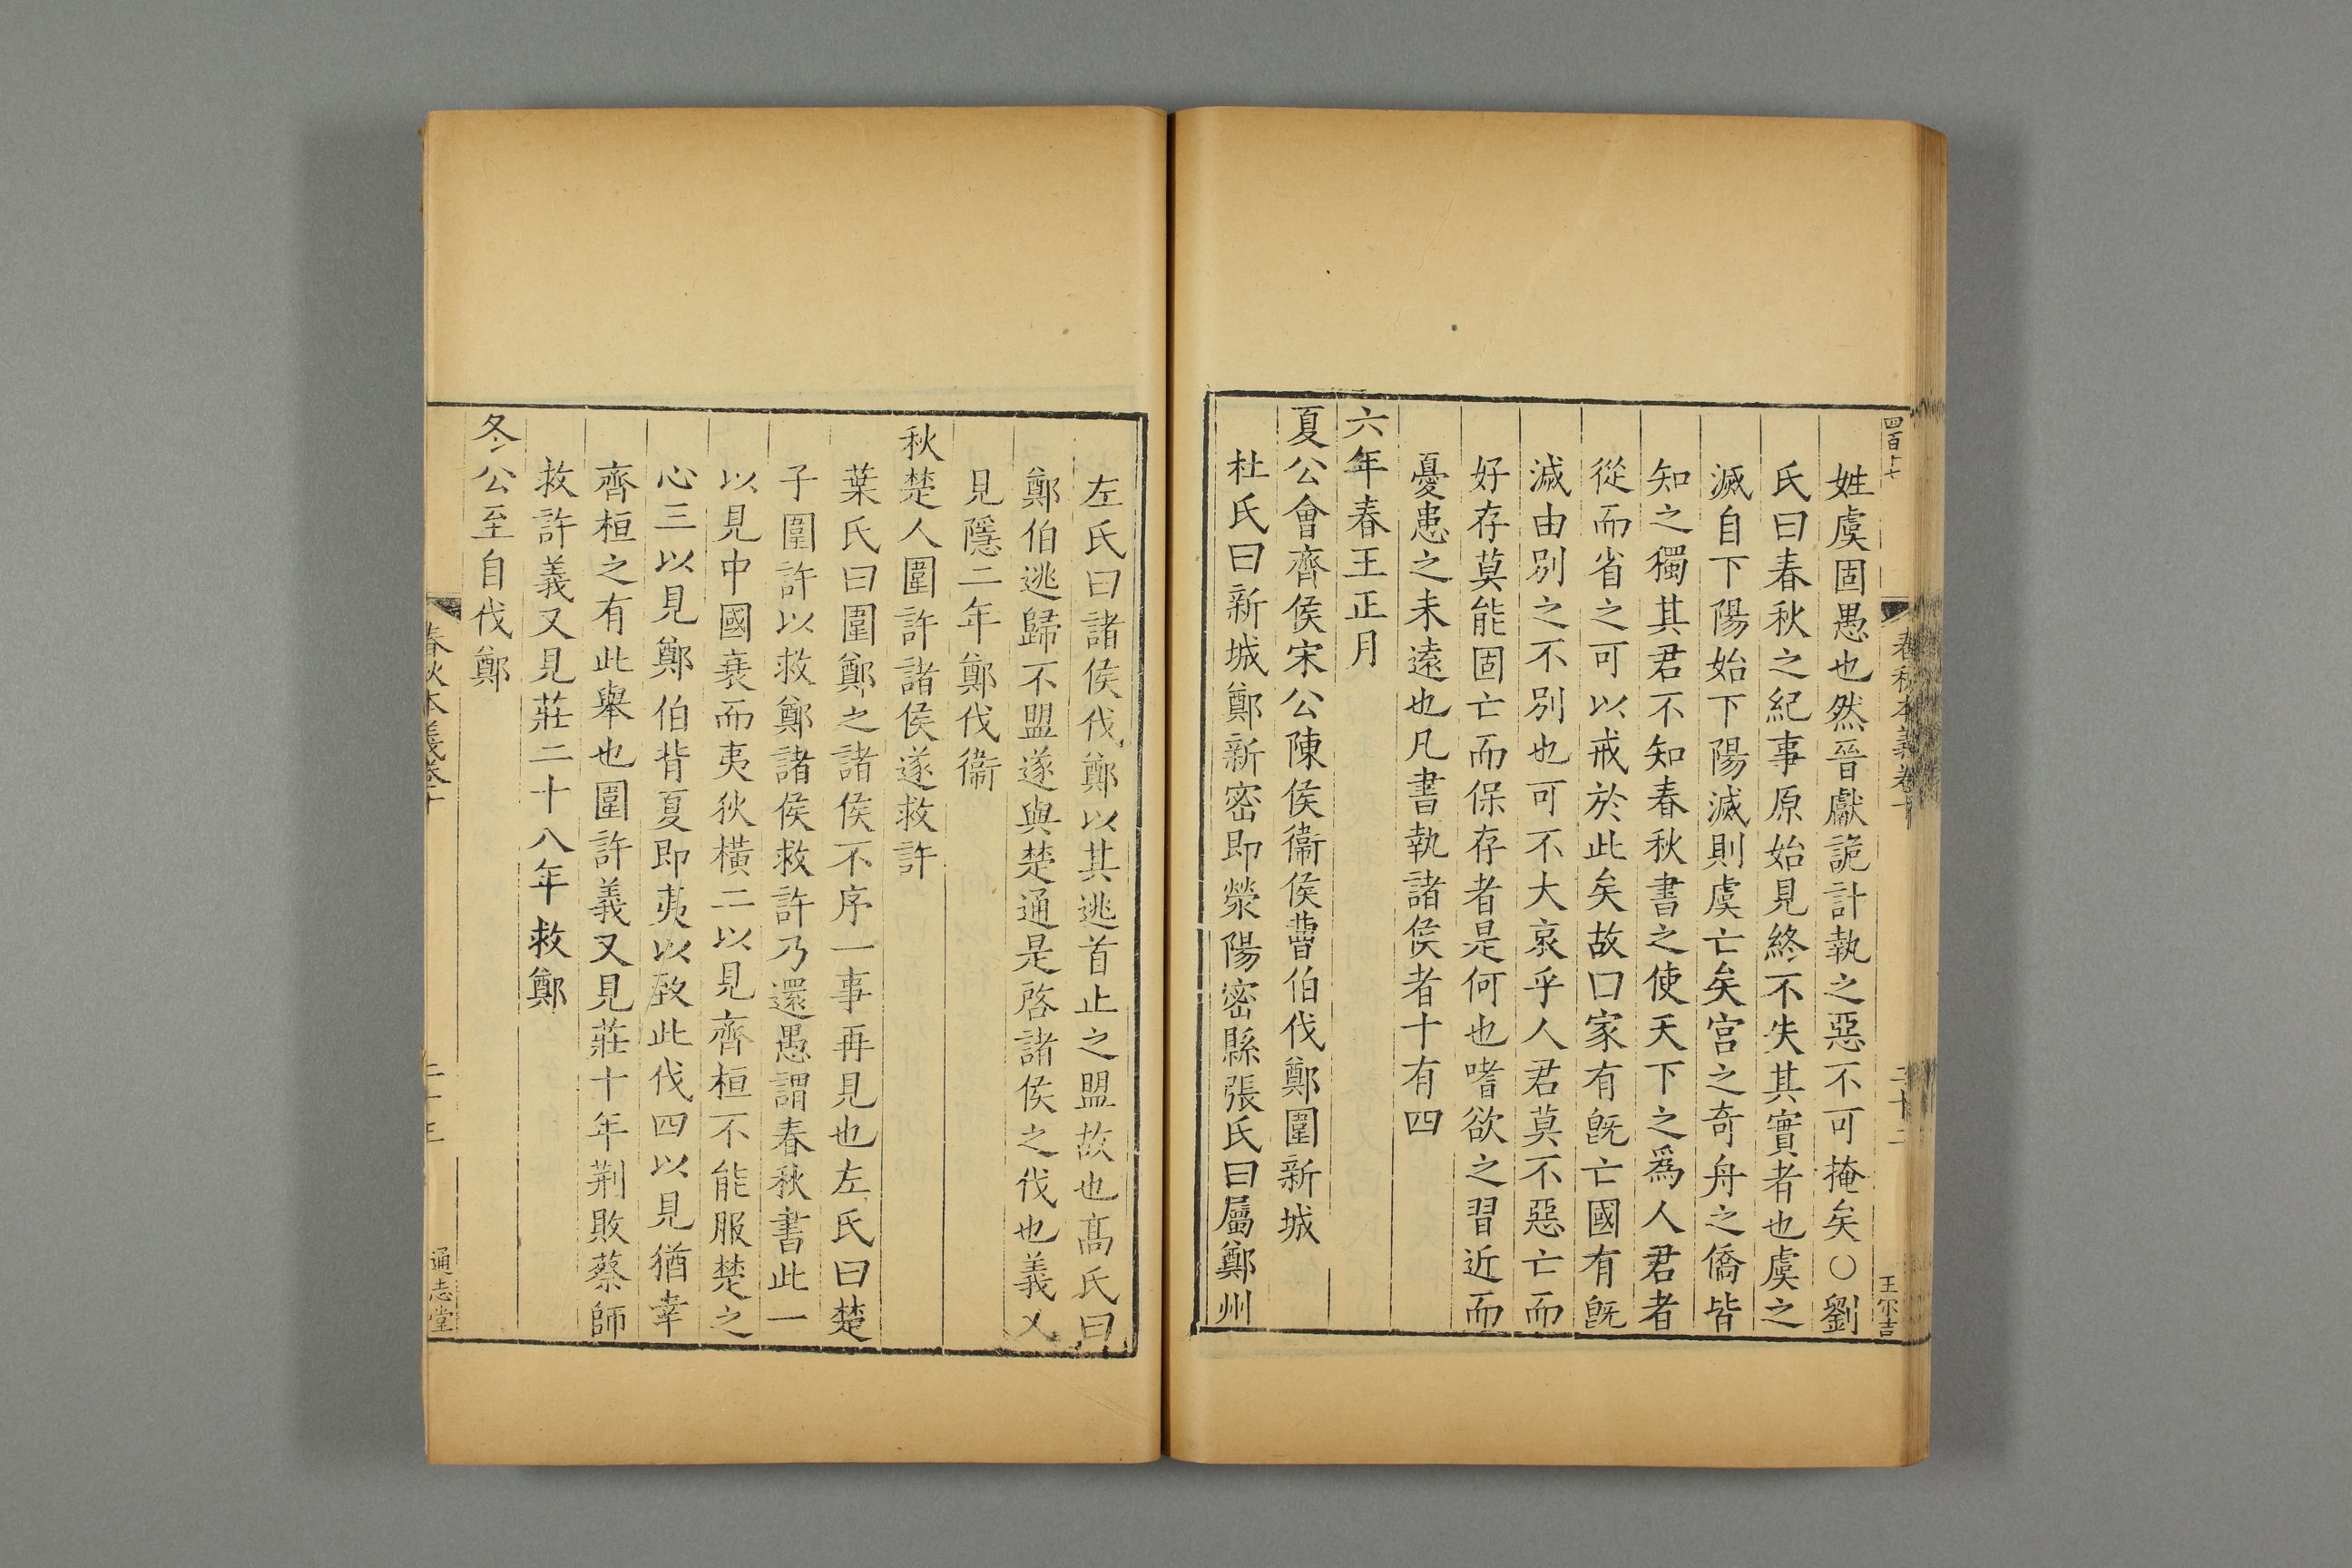 四百十七
春秋本義卷十
二十二
王尔吉
姓虞固愚也然晉獻詭計執之惡不可掩矣○劉
氏曰春秋之紀事原始見終不失其實者也虞之
滅自下陽始下陽滅則虞亡矣宫之奇舟之僑皆
知之獨其君不知春秋書之使天下之爲人君者
從而省之可以戒於此矣故口家有旣亡國有旣
滅由別之不別也可不大哀乎人君莫不惡亡而
好存莫能固亡而保存者是何也嗜欲之習近而
憂患之未遠也凡書執諸侯者十有四
六年春王正月
夏公會齊侯宋公陳侯衞侯曹伯伐鄭圍新城
杜氏曰新城鄭新密即滎陽密縣張氏曰屬鄭州
左氏曰諸侯伐鄭以其逃首止之盟故也髙氏曰
鄭伯逃歸不盟遂與楚通是啓諸侯之伐也義又
見隱二年鄭伐衞
秋楚人圍許諸侯遂救許
葉氏曰圍鄭之諸侯不序一事再見也左氏曰楚
子圍許以救鄭諸侯救許乃還愚謂春秋書此一
以見中國衰而夷狄橫二以見齊桓不能服楚之
心三以見鄭伯背夏即夷以致此伐四以見猶幸
齊桓之有此舉也圍許義又見莊十年荆敗蔡師
救許義又見莊二十八年救鄭
冬公至自伐鄭
春秋本義卷十
通志堂